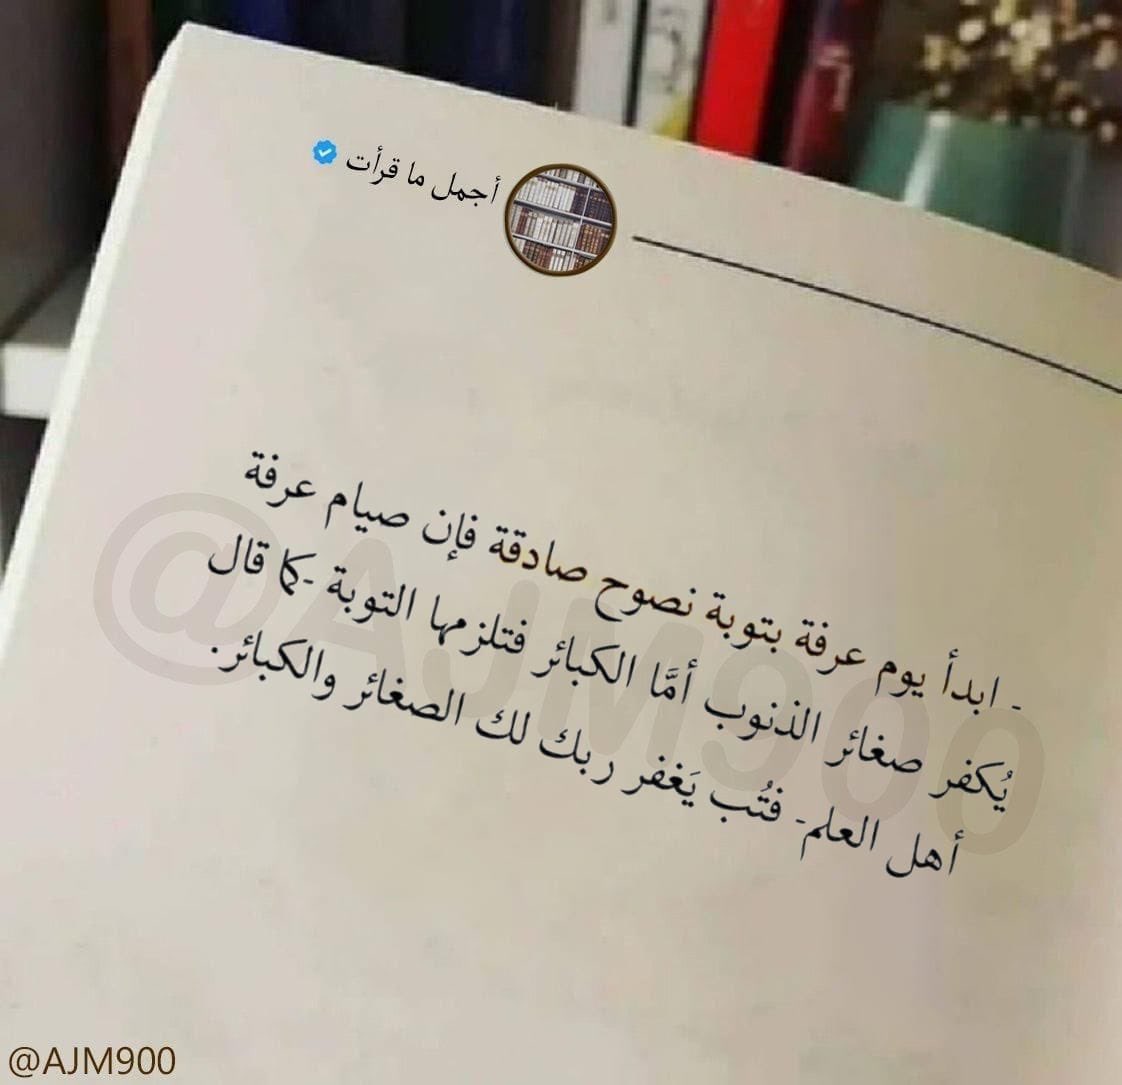 أجمل ما قرأت
- ابدأ يوم عرفة بتوبة نصوح صادقة فإن صيام عرفة
يُكفر صغائر الذنوب أمَّا الكبائر فتلزمها التوبة -كما قال
أهل العلم- فتُب يَغفر ربك لك الصغائر والكبائر.
@AJM900
@AJM900